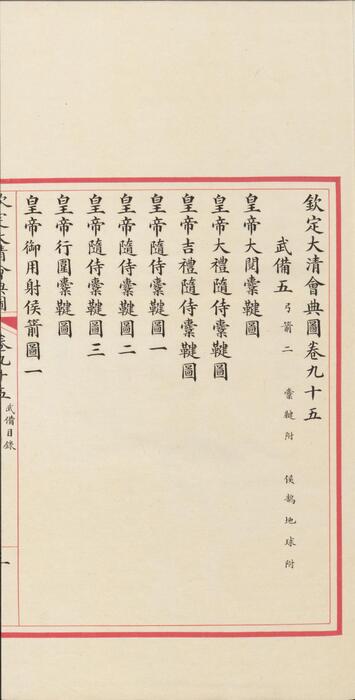 欽定大清會典圖卷九十五
武備五 弓箭二 櫜鞬附 侯鵠地球附
皇帝大閱櫜鞬圖
皇帝大禮隨侍櫜鞬圖
皇帝吉禮隨侍櫜鞬圖
皇帝隨侍櫜鞬圖一
皇帝隨侍櫜鞬圖二
皇帝隨侍櫜鞬圖三
皇帝行圍櫜鞬圖
皇帝御用射侯箭圖一
欽定大清會典圖 卷九十五 武備目錄 一